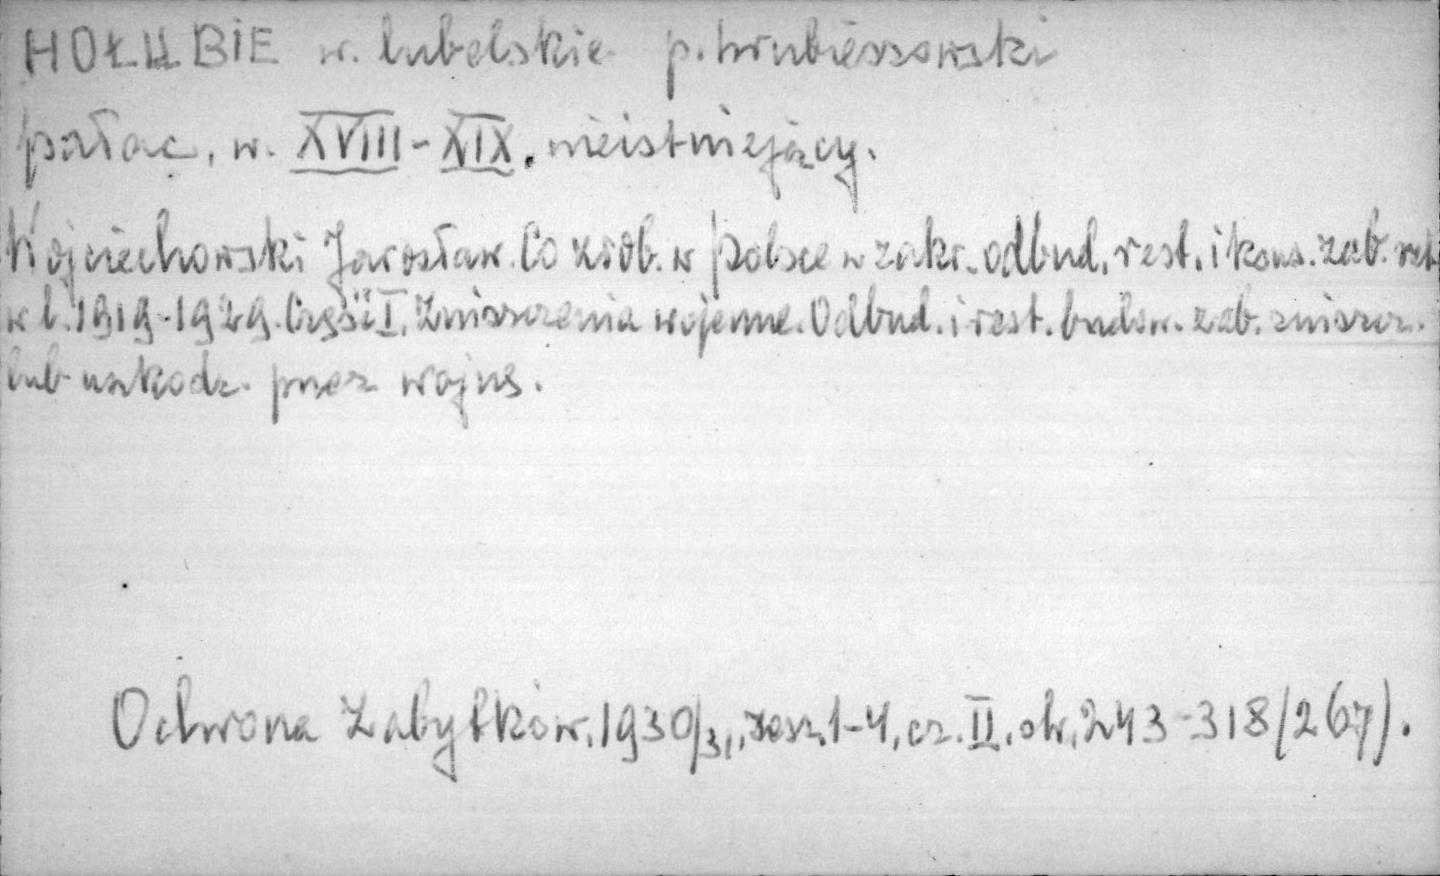 HOŁUBIE w. lubelskie p. hrubieszowski
pałac, w. XVIII-XIX, nieistniejący.
Wojciechowski Jarosław. Co zrob. w Polsce w zakr. odbud. rest. i kons. zab.
w l. 1919-1929. Część I. Zniszczenia wojenne. Odbud. i rest. budow. zab. zniszcz.
lub uszkodz. przez wojnę.
Ochrona Zabytków, 1930/3, zesz. 1-4, cz. II, str. 243-318/267).